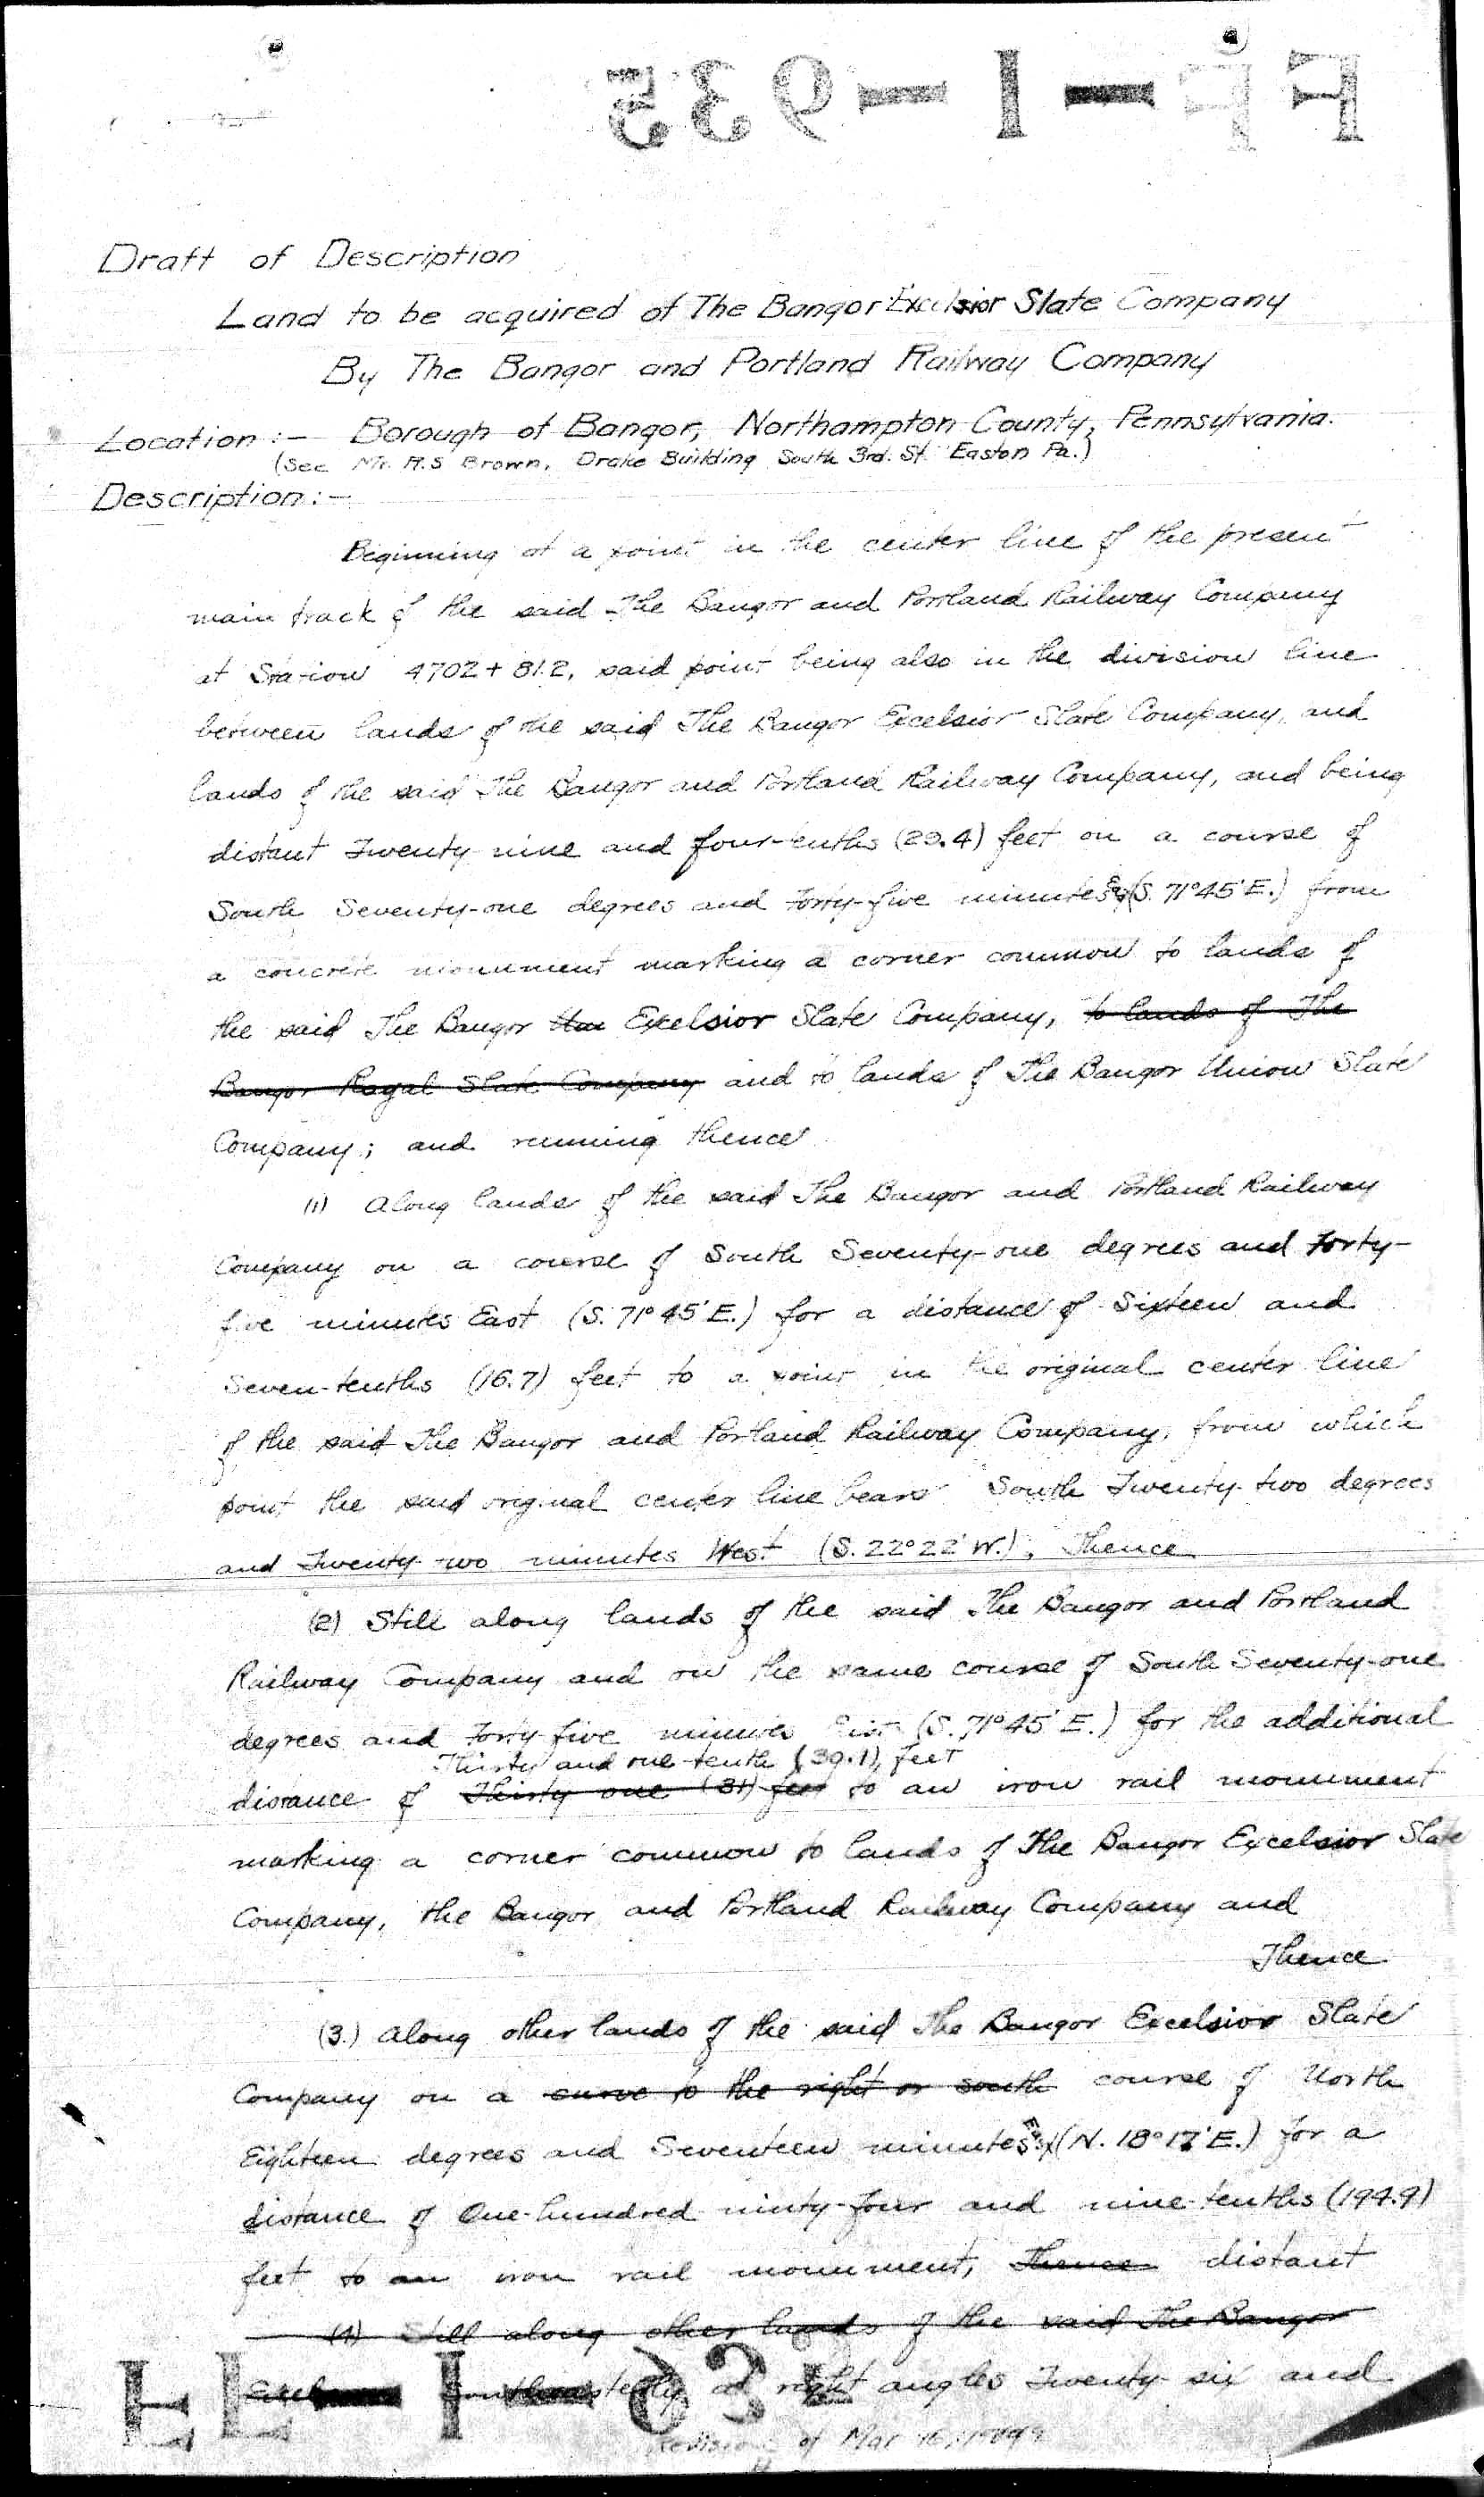 Draft of Description
Land to be acquired of The Bangor Excelsior Slate Company
By The Bangor and Portland Railway Company
Location :- Borough of Bangor, Northampton County, Pennsylvania.
(See Mr. A.S Brown, Drake Building South 3rd. St. Easton Pa.)
Description :-
Beginning at a point in the center line of the present
main track of the said The Bangor and Portland Railway Company
at Station 4702 + 81.2, said point being also in the division line
between lands of the said The Bangor Excelsior Slate Company, and
lands of the said The Bangor and Portland Railway Company, and being
distant Twenty nine and four-tenths (29.4) feet on a course of
South Seventy-one degrees and forty-five minutes East (S. 71° 45' E.) from
a concrete monument marking a corner common to lands of
the said The Bangor Un Excelsior Slate Company, to lands of The
Bangor Royal Slate Company and to lands of The Bangor Union Slate
Company; and running thence
(1) Along lands of the said The Bangor and Portland Railway
Company on a course of South Seventy-one degrees and forty-
five minutes East (S. 71° 45' E.) for a distance of Sixteen and
Seven-tenths (16.7) feet to a point in the original center line
of the said The Bangor and Portland Railway Company, from which
point the said original center line bears South Twenty-two degrees
and Twenty-two minutes West (S. 22° 22' W.); Thence
(2) Still along lands of the said The Bangor and Portland
Railway Company and on the same course of South Seventy-one
degrees and forty-five minutes East (S. 71° 45' E.) for the additional
Thirty and one-tenth (30.1) feet
distance of Thirty one (31) feet to an iron rail monument
marking a corner common to lands of The Bangor Excelsior Slate
Company, the Bangor and Portland Railway Company and
Thence
(3.) Along other lands of the said The Bangor Excelsior Slate
Company on a curve to the right or south course of North
Eighteen degrees and Seventeen minutes East (N. 18° 17' E.) for a
distance of One-hundred ninty-four and nine-tenths (194.9)
feet to an iron rail monument, Thence distant
(4) Still along other lands of the said The Bangor
at right angles Twenty-six and
of Mar